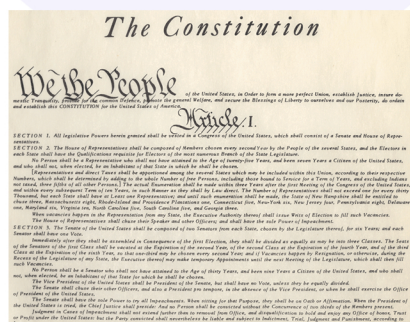 The Constitution
We the People of the United States, in Order to form a more perfect Union, establish Justice, insure do-
mestic Tranquility, provide for the common Defence, promote the general Welfare, and secure the Blessings of Liberty to ourselves and our Posterity, do ordain
and establish this CONSTITUTION for the United States of America.
Article I.
SECTION 1. All legislative Powers herein granted shall be vested in a Congress of the United States, which shall consist of a Senate and House of Repre-
sentatives.
SECTION 2. The House of Representatives shall be composed of Members chosen every second Year by the People of the several States, and the Electors in
each State shall have the Qualifications requisite for Electors of the most numerous Branch of the State Legislature.
No Person shall be a Representative who shall not have attained to the Age of twenty-five Years, and been seven Years a Citizen of the United States,
and who shall not, when elected, be an Inhabitant of that State in which he shall be chosen.
[Representatives and direct Taxes shall be apportioned among the several States which may be included within this Union, according to their respective
Numbers, which shall be determined by adding to the whole Number of free Persons, including those bound to Service for a Term of Years, and excluding Indians
not taxed, three fifths of all other Persons.] The actual Enumeration shall be made within three Years after the first Meeting of the Congress of the United States,
and within every subsequent Term of ten Years, in such Manner as they shall by Law direct. The Number of Representatives shall not exceed one for every thirty
Thousand, but each State shall have at Least one Representative; and until such enumeration shall be made, the State of New Hampshire shall be entitled to
chuse three, Massachusetts eight, Rhode-Island and Providence Plantations one, Connecticut five, New-York six, New Jersey four, Pennsylvania eight, Delaware
one, Maryland six, Virginia ten, North Carolina five, South Carolina five, and Georgia three.
When vacancies happen in the Representation from any State, the Executive Authority thereof shall issue Writs of Election to fill such Vacancies.
The House of Representatives shall chuse their Speaker and other Officers; and shall have the sole Power of Impeachment.
SECTION 3. The Senate of the United States shall be composed of two Senators from each State, chosen by the Legislature thereof, for six Years; and each
Senator shall have one Vote.
Immediately after they shall be assembled in Consequence of the first Election, they shall be divided as equally as may be into three Classes. The Seats
of the Senators of the first Class shall be vacated at the Expiration of the second Year, of the second Class at the Expiration of the fourth Year, and of the third
Class at the Expiration of the sixth Year, so that one third may be chosen every second Year; and if Vacancies happen by Resignation, or otherwise, during the
Recess of the Legislature of any State, the Executive thereof may make temporary Appointments until the next Meeting of the Legislature, which shall then fill
such Vacancies.
No Person shall be a Senator who shall not have attained to the Age of thirty Years, and been nine Years a Citizen of the United States, and who shall
not, when elected, be an Inhabitant of that State for which he shall be chosen.
The Vice President of the United States shall be President of the Senate, but shall have no Vote, unless they be equally divided.
The Senate shall chuse their other Officers, and also a President pro tempore, in the absence of the Vice President, or when he shall exercise the Office
of President of the United States.
The Senate shall have the sole Power to try all Impeachments. When sitting for that Purpose, they shall be on Oath or Affirmation. When the President of
the United States is tried, the Chief Justice shall preside: And no Person shall be convicted without the Concurrence of two thirds of the Members present.
Judgment in Cases of Impeachment shall not extend further than to removal from Office, and disqualification to hold and enjoy any Office of honor, Trust
or Profit under the United States: but the Party convicted shall nevertheless be liable and subject to Indictment, Trial, Judgment and Punishment, according to